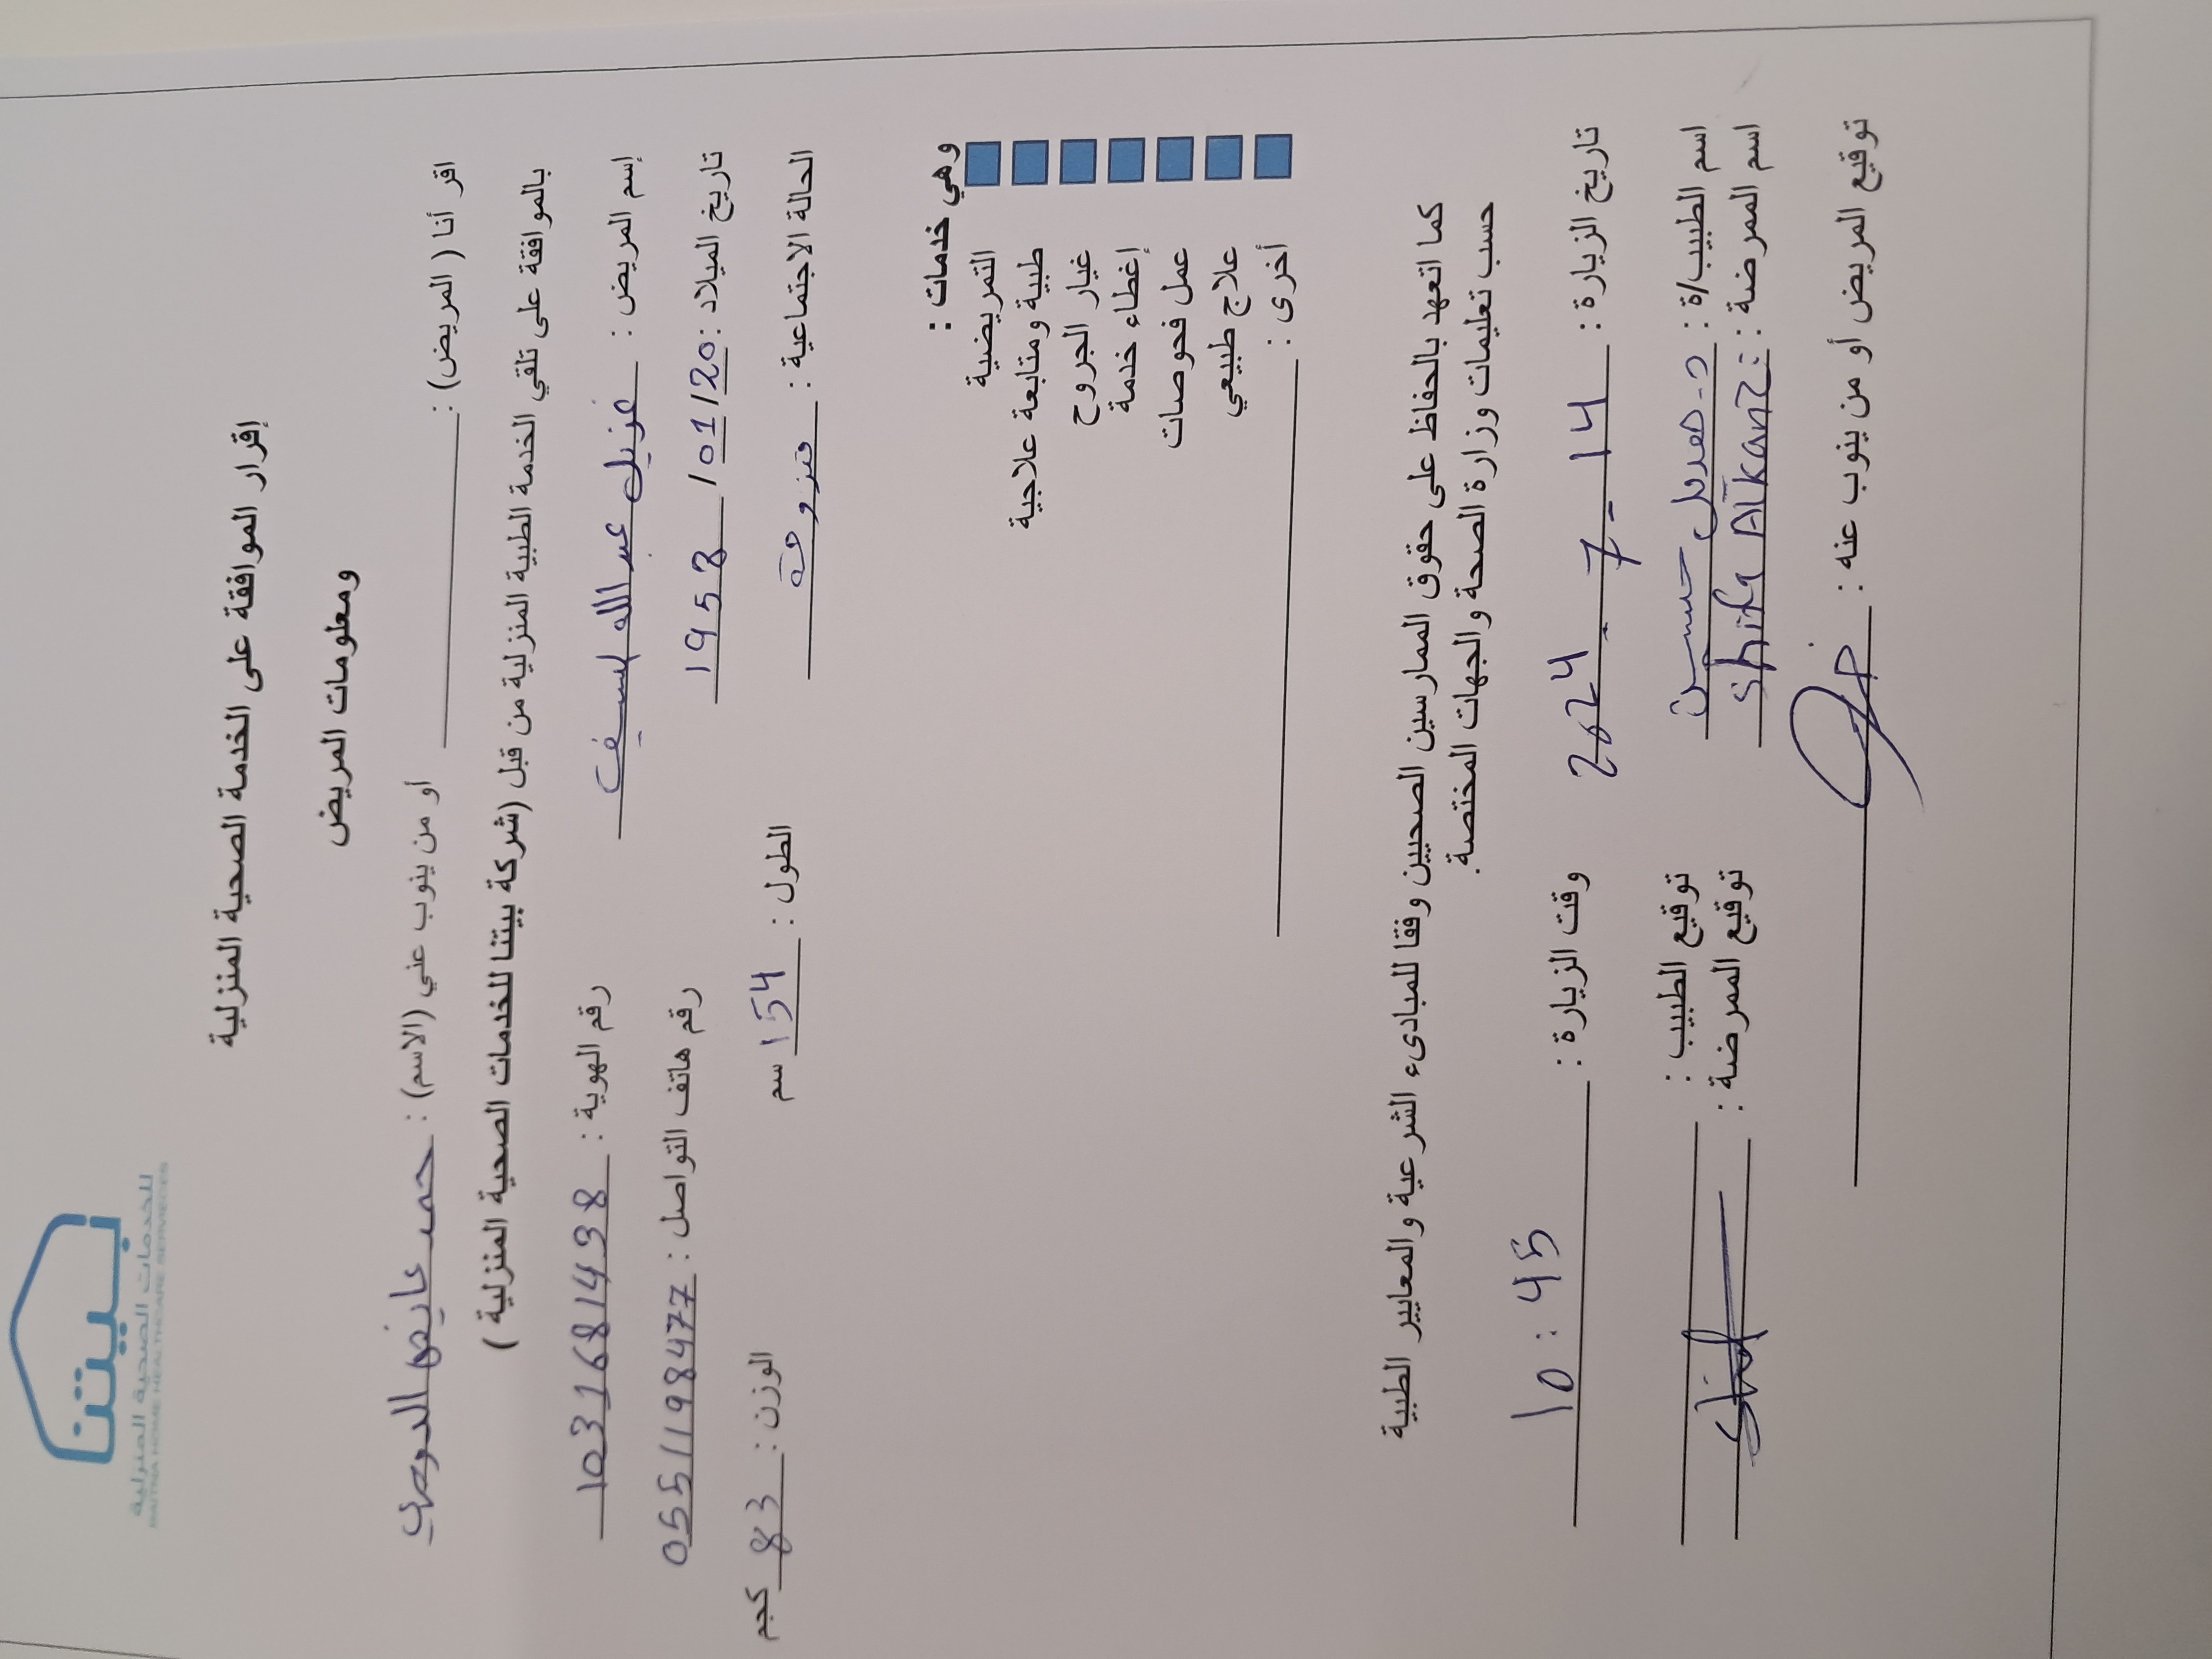 بيتنا
للخدمات الصحية المنزلية
BAITNA HOME HEALTHCARE SERVICES
إقرار الموافقة على الخدمة الصحية المنزلية
ومعلومات المريض
اقر أنا ( المريض) : أو من ينوب عني (الاسم) : حمد عايض الدوسري
بالموافقة على تلقي الخدمة الطبية المنزلية من قبل (شركة بيتنا للخدمات الصحية المنزلية )
إسم المريض : عبدالله سيف رقم الهوية : 1031681438
تاريخ الميلاد : 20/ 01/ 1958 رقم هاتف التواصل : 0551198477
الحالة الاجتماعية : متزوجة الطول : 154 سم الوزن : 83 كجم
وهي خدمات :
التمريضية
طبية ومتابعة علاجية
غيار الجروح
إغطاء خدمة
عمل فحوصات
علاج طبيعي
أخرى :
كما اتعهد بالحفاظ على حقوق الممارسين الصحيين وفقا للمبادىء الشرعية والمعايير الطبية
حسب تعليمات وزارة الصحة والجهات المختصة.
تاريخ الزيارة : 14 - 7 - 2024 وقت الزيارة : 10 : 45
اسم الطبيب/ة : د. هديل حسين توقيع الطبيب :
اسم الممرضة : Shifa Alkanz توقيع الممرضة :
توقيع المريض أو من ينوب عنه :